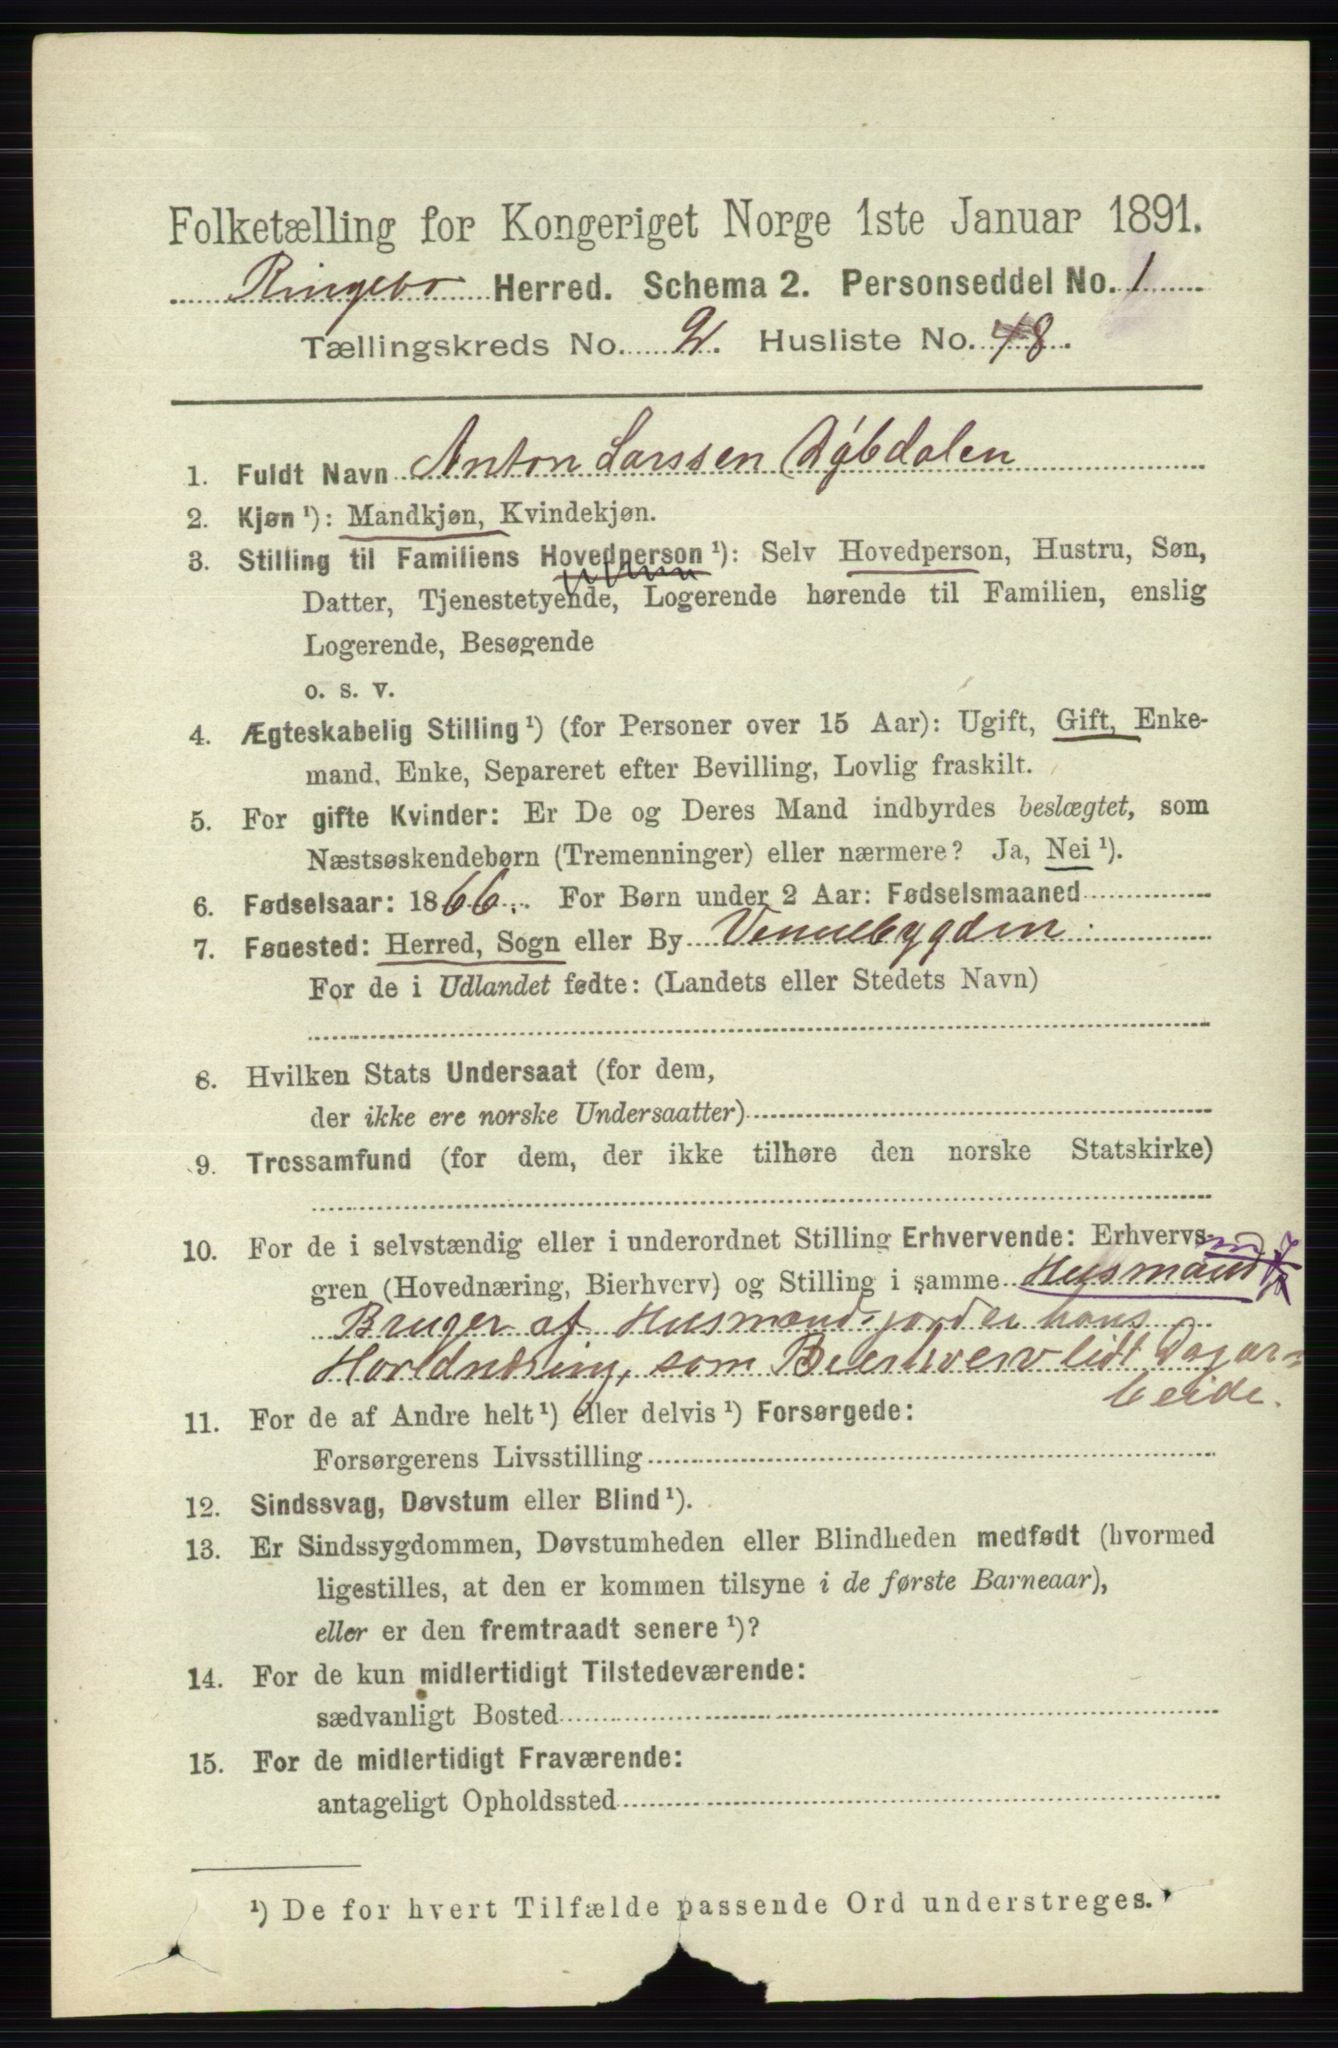 Folketælling for Kongeriget Norge 1ste Januar 1891.
Ringebo Herred. Schema 2. Personseddel No. 1
Tællingskreds No. 2. Husliste No. 48.
1. Fuldt Navn Anton Larssen Dybdalen
2. Kjøn ¹): Mandkjøn, Kvindekjøn.
3. Stilling til Familiens Hovedperson ¹): Selv Hovedperson, Hustru, Søn,
Datter, Tjenestetyende, Logerende hørende til Familien, enslig
Logerende, Besøgende
o. s. v.
4. Ægteskabelig Stilling ¹) (for Personer over 15 Aar): Ugift, Gift, Enke-
mand, Enke, Separeret efter Bevilling, Lovlig fraskilt.
5. For gifte Kvinder: Er De og Deres Mand indbyrdes beslægtet, som
Næstsøskendebørn (Tremenninger) eller nærmere? Ja, Nei ¹).
6. Fødselsaar: 1866. For Børn under 2 Aar: Fødselsmaaned
7. Fødested: Herred, Sogn eller By Vennebygden
For de i Udlandet fødte: (Landets eller Stedets Navn)
8. Hvilken Stats Undersaat (for dem,
der ikke ere norske Undersaatter)
9. Trossamfund (for dem, der ikke tilhøre den norske Statskirke)
10. For de i selvstændig eller i underordnet Stilling Erhvervende: Erhvervs-
gren (Hovednæring, Bierhverv) og Stilling i samme Husmand
Bruger af Husmandsjorder hans
Hovednæring, som Bierhverv lidt Dagar-
beide.
11. For de af Andre helt ¹) eller delvis ¹) Forsørgede:
Forsørgerens Livsstilling
12. Sindssvag, Døvstum eller Blind ¹).
13. Er Sindssygdommen, Døvstumheden eller Blindheden medfødt (hvormed
ligestilles, at den er kommen tilsyne i de første Barneaar),
eller er den fremtraadt senere ¹)?
14. For de kun midlertidigt Tilstedeværende:
sædvanligt Bosted
15. For de midlertidigt Fraværende:
antageligt Opholdssted
¹) De for hvert Tilfælde passende Ord understreges.